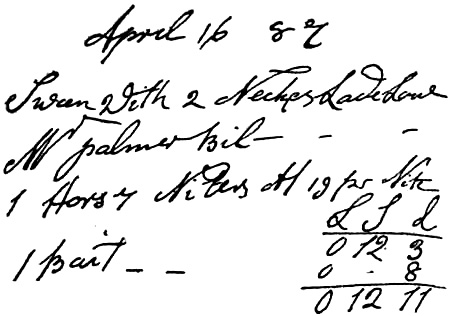 April 16 87
Swan With 2 Neckes Lade Lane
Mr palmer bil – – –
1 Hors 7 Niters At 1 9 pr Nite
£ S d
0 12 3
1 Bait – – 0 . 8
0 12 11